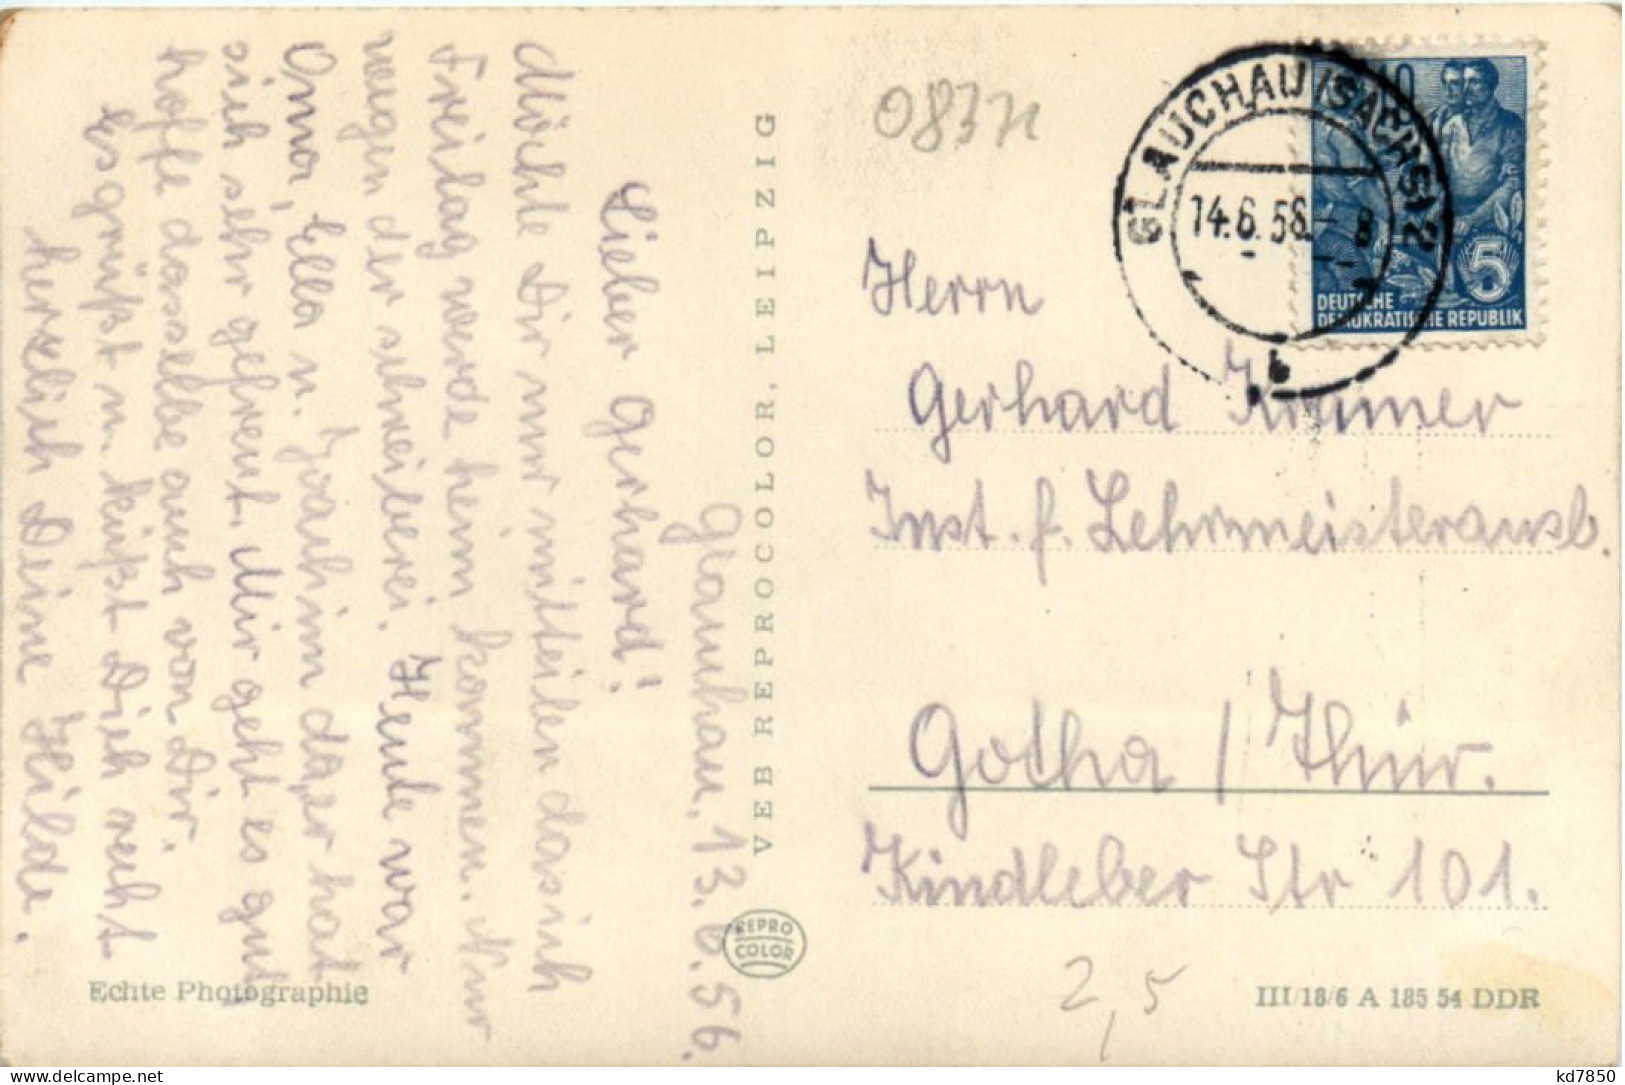 Glauchau, 13.6.56.
Lieber Gerhard!
Möchte Dir nur mitteilen das ich
Freitag werde heim kommen. Nur
wegen der schreiberei. Heute war
Oma, Ella u. Joachim da, er hat
sich sehr gefreut. Mir geht es gut
hoffe dasselbe auch von Dir.
Es grüßt u. küßt Dich recht
herzlich Deine Hilde.
Echte Photographie
VEB REPROCOLOR, LEIPZIG
REPRO
COLOR
0837
GLAUCHAU (SACHS) 2
14.6.56.-8
b
10
5
DEUTSCHE
DEMOKRATISCHE REPUBLIK
Herrn
Gerhard Kramer
Inst. f. Lehrmeisterausb.
Gotha / Thür.
Kindleber Str 101.
2,5
III/18/6 A 185 54 DDR
kd7850